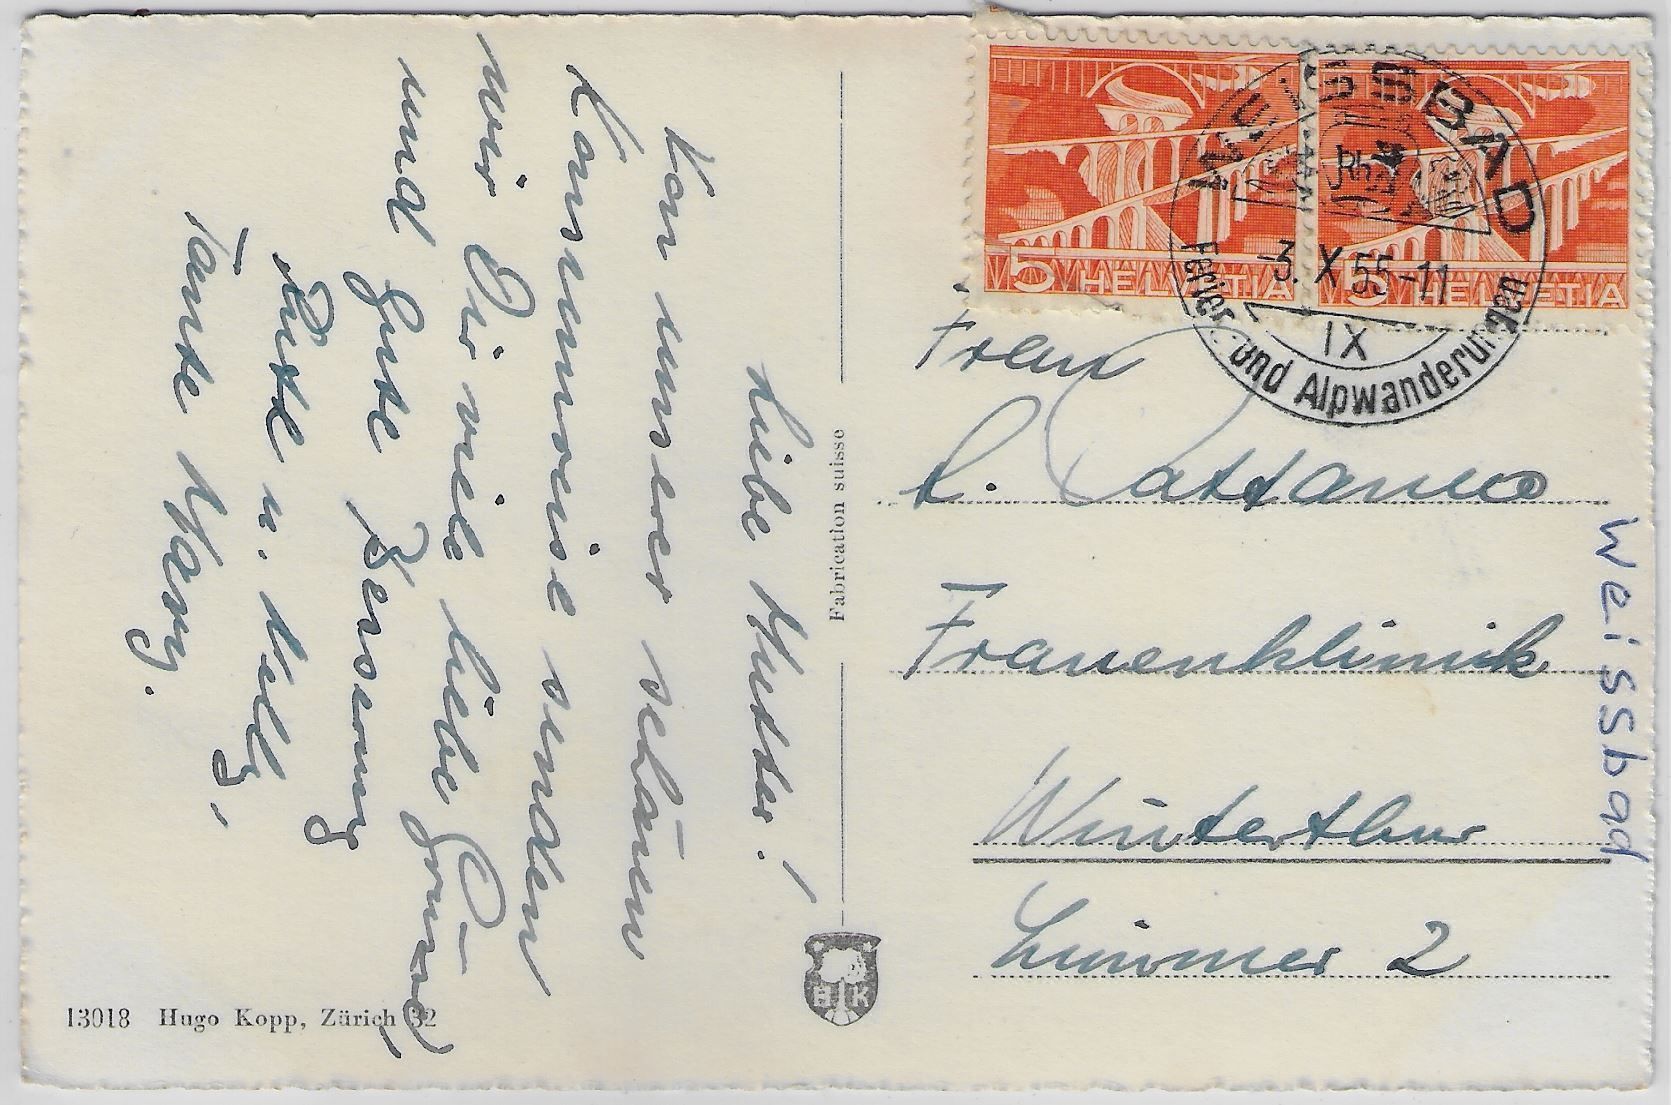 Liebe Mutter!
Von unserer schönen
Konsumreise senden
wir Dir viele liebe Grüsse
und gute Besserung
Päul u. Nelly,
Tante Mary.
Fabrication suisse
HK
13018 Hugo Kopp, Zürich 32
5 HELVETIA
5 HELVETIA
WEISSBAD
-3. X.55-11
IX
Ferien und Alpwanderungen
Frau
L. Cattaneo
Frauenklinik
Winterthur
Zimmer 2
Weissbad